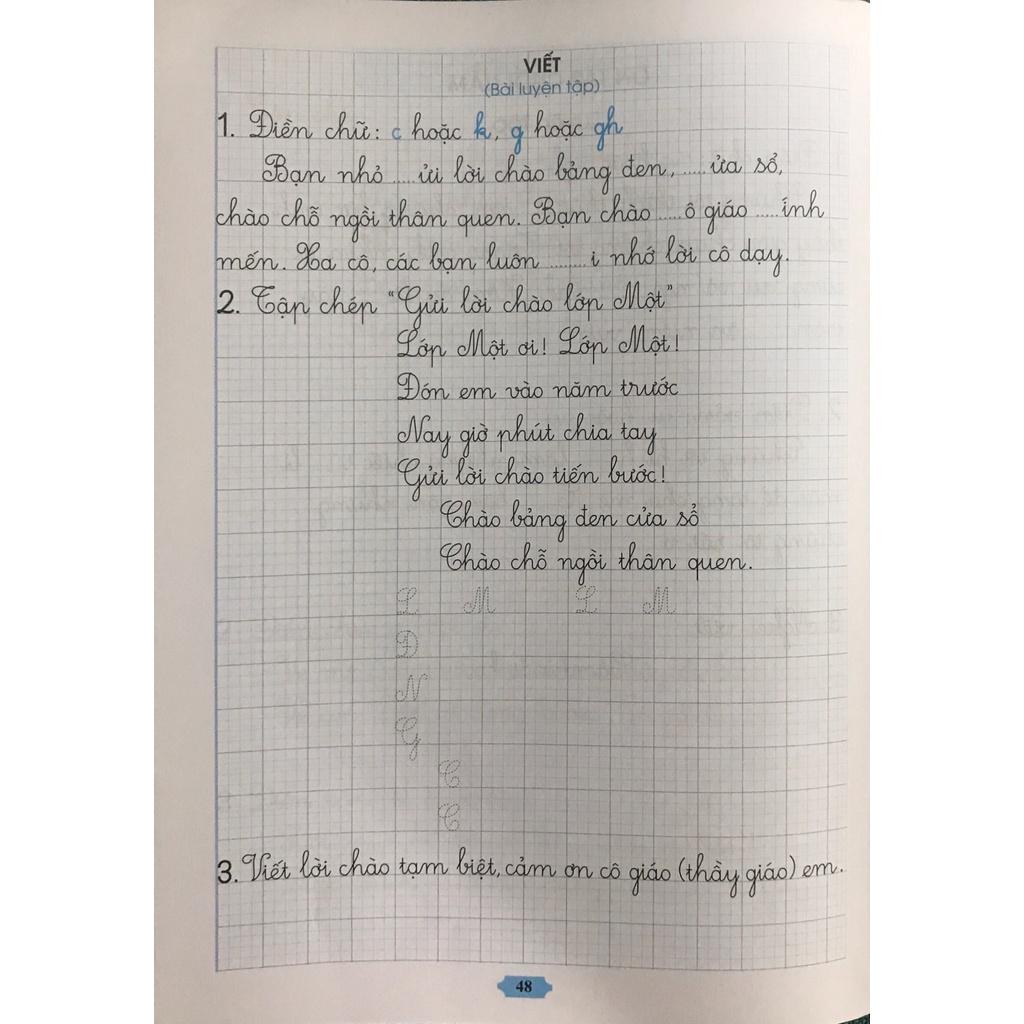 VIẾT
(Bài luyện tập)
1. Điền chữ: c hoặc k, g hoặc gh
Bạn nhỏ .... ửi lời chào bảng đen, ..... ửa sổ,
chào chỗ ngồi thân quen. Bạn chào ..... ô giáo ..... ính
mến. Xa cô, các bạn luôn ....... i nhớ lời cô dạy.
2. Tập chép "Gửi lời chào lớp Một"
Lớp Một ơi! Lớp Một!
Đón em vào năm trước
Nay giờ phút chia tay
Gửi lời chào tiến bước!
Chào bảng đen cửa sổ
Chào chỗ ngồi thân quen.
L M L M
Đ
N
G
C
C
3. Viết lời chào tạm biệt, cảm ơn cô giáo (thầy giáo) em.
48